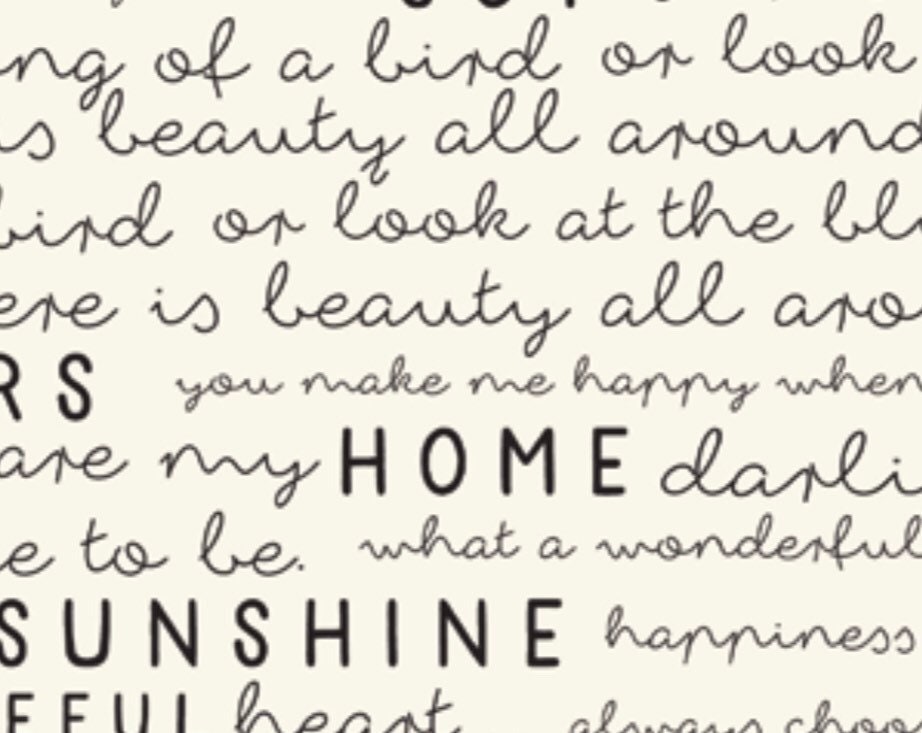 ng of a bird or look
is beauty all around
bird or look at the bl
ere is beauty all aro
RS you make me happy when
are my HOME darli
e to be. what a wonderful
SUNSHINE happiness
EFUL heart always choo